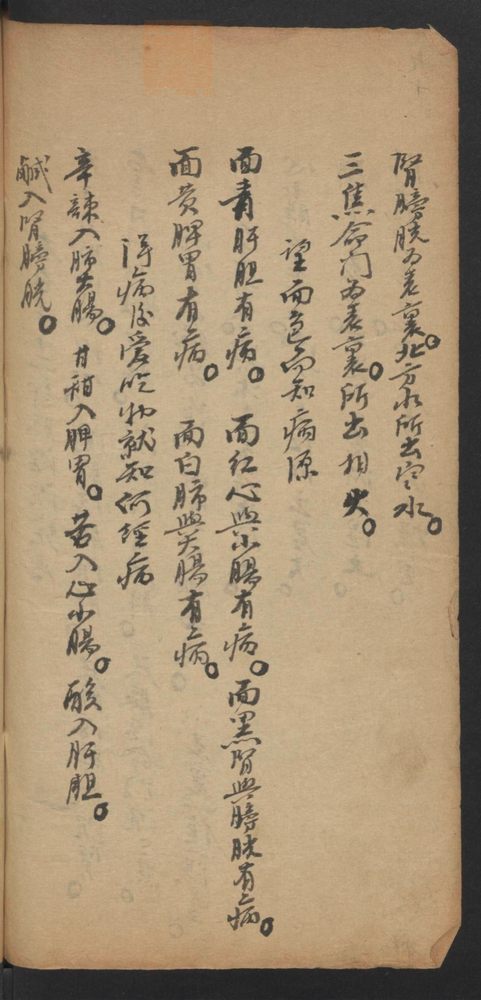 腎膀胱为表裏。北方水所出寒水。
三焦命门为表裏。所出相火。
望面色而知病源
面青肝胆有病。面红心與小腸有病。面黑腎與膀胱有病。
面黄脾胃有病。面白肺與大腸有病。
得病后爱吃物就知何經病
辛辣入肺大腸。甘甜入脾胃。苦入心小腸。酸入肝胆。
鹹入腎膀胱。